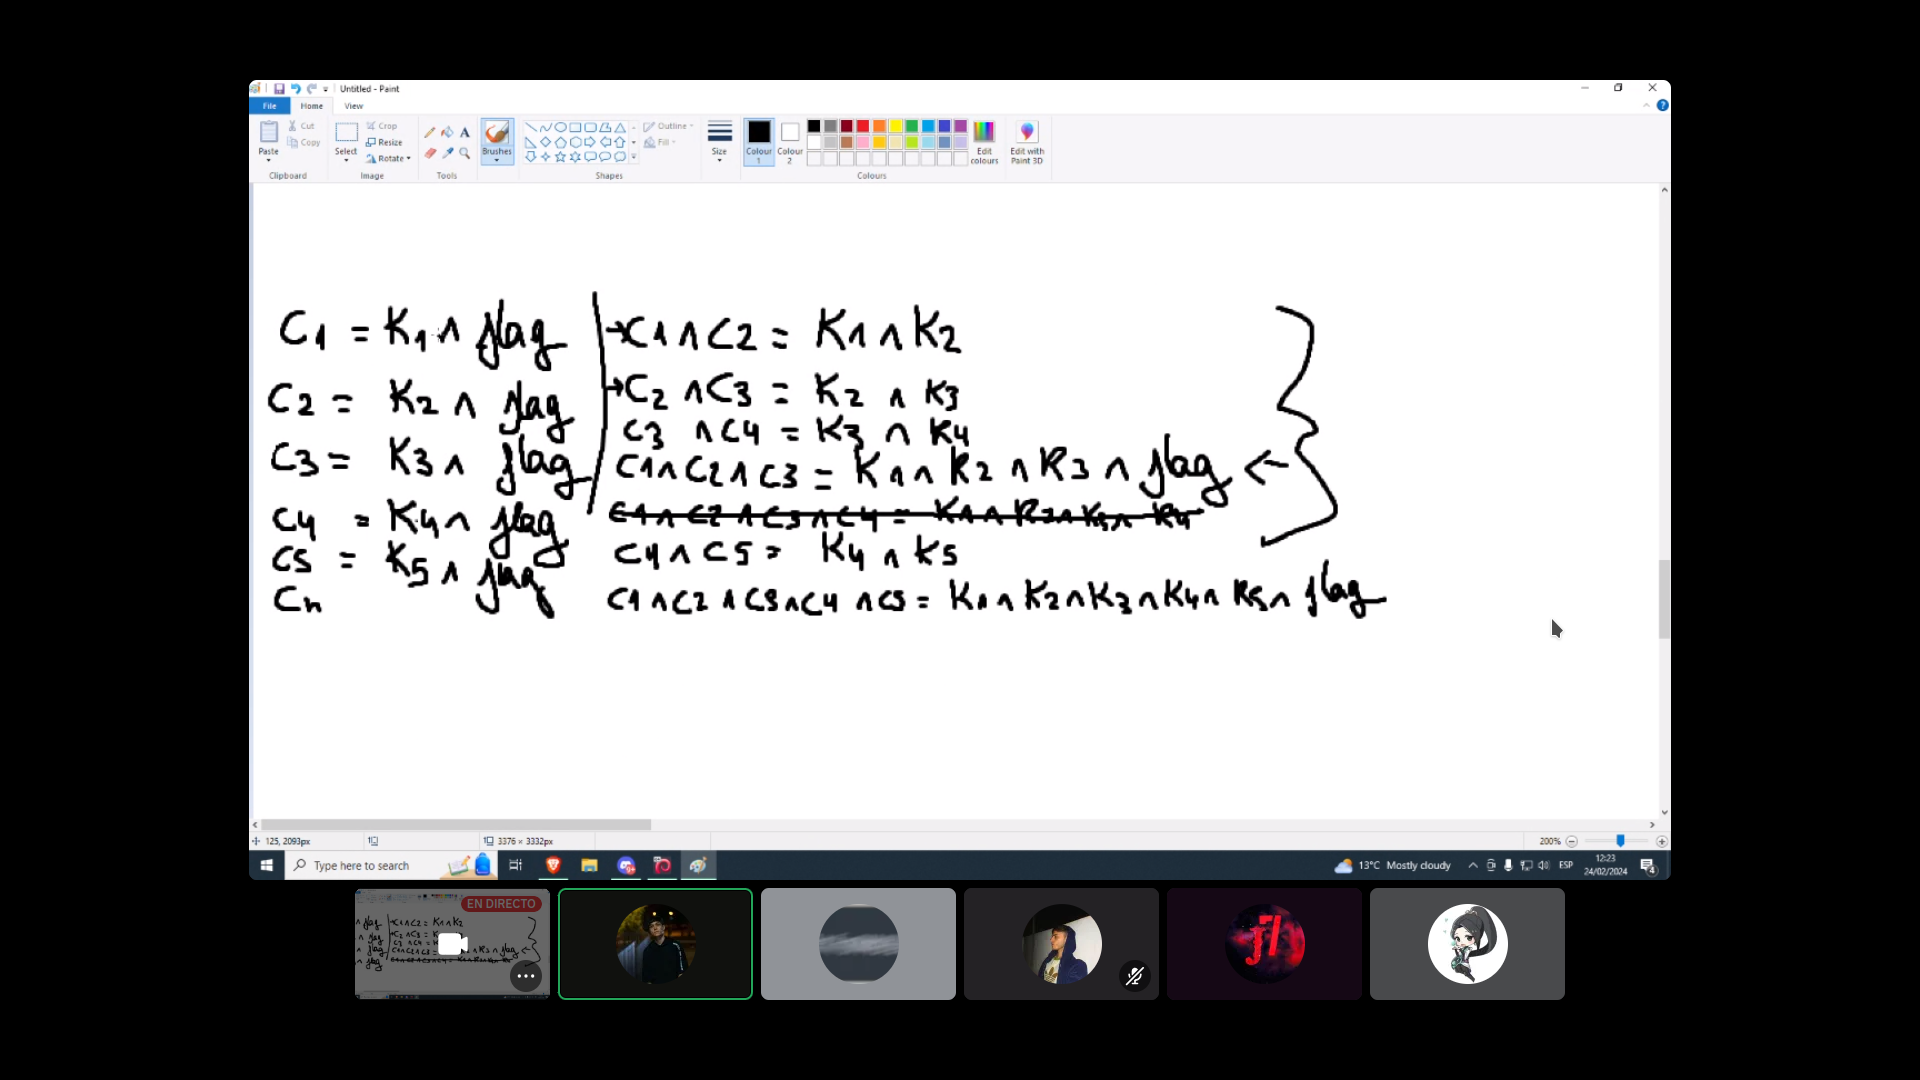 Untitled - Paint
File Home View
Paste
Cut
Copy
Clipboard
Select
Crop
Resize
Rotate
Image
Tools
Brushes
Shapes
Outline
Fill
Size
Colour 1
Colour 2
Edit colours
Colours
Edit with Paint 3D
C1 = K1 ∧ flag
C2 = K2 ∧ flag
C3 = K3 ∧ flag
C4 = K4 ∧ flag
C5 = K5 ∧ flag
Cn
→C1 ∧ C2 = K1 ∧ K2
→C2 ∧ C3 = K2 ∧ K3
C3 ∧ C4 = K3 ∧ K4
C1 ∧ C2 ∧ C3 = K1 ∧ K2 ∧ K3 ∧ flag ←
C1 ∧ C2 ∧ C3 ∧ C4 = K1 ∧ K2 ∧ K3 ∧ K4
C4 ∧ C5 = K4 ∧ K5
C1 ∧ C2 ∧ C3 ∧ C4 ∧ C5 = K1 ∧ K2 ∧ K3 ∧ K4 ∧ K5 ∧ flag
125, 2093px
3376 × 3332px
200%
Type here to search
13°C Mostly cloudy
ESP
12:23
24/02/2024
4
EN DIRECTO